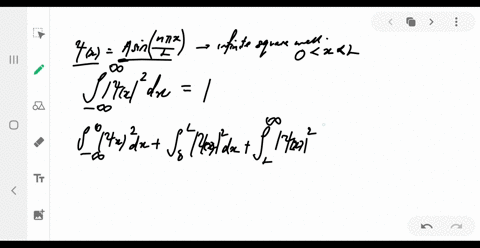 Ψ(x) = A sin(nπx/L) → infinite square well. 0 < x < L
∫_{-∞}^{∞} |Ψ(x)|² dx = 1
∫_{-∞}^{0} |Ψ(x)|² dx + ∫_{0}^{L} |Ψ(x)|² dx + ∫_{L}^{∞} |Ψ(x)|²
Tт